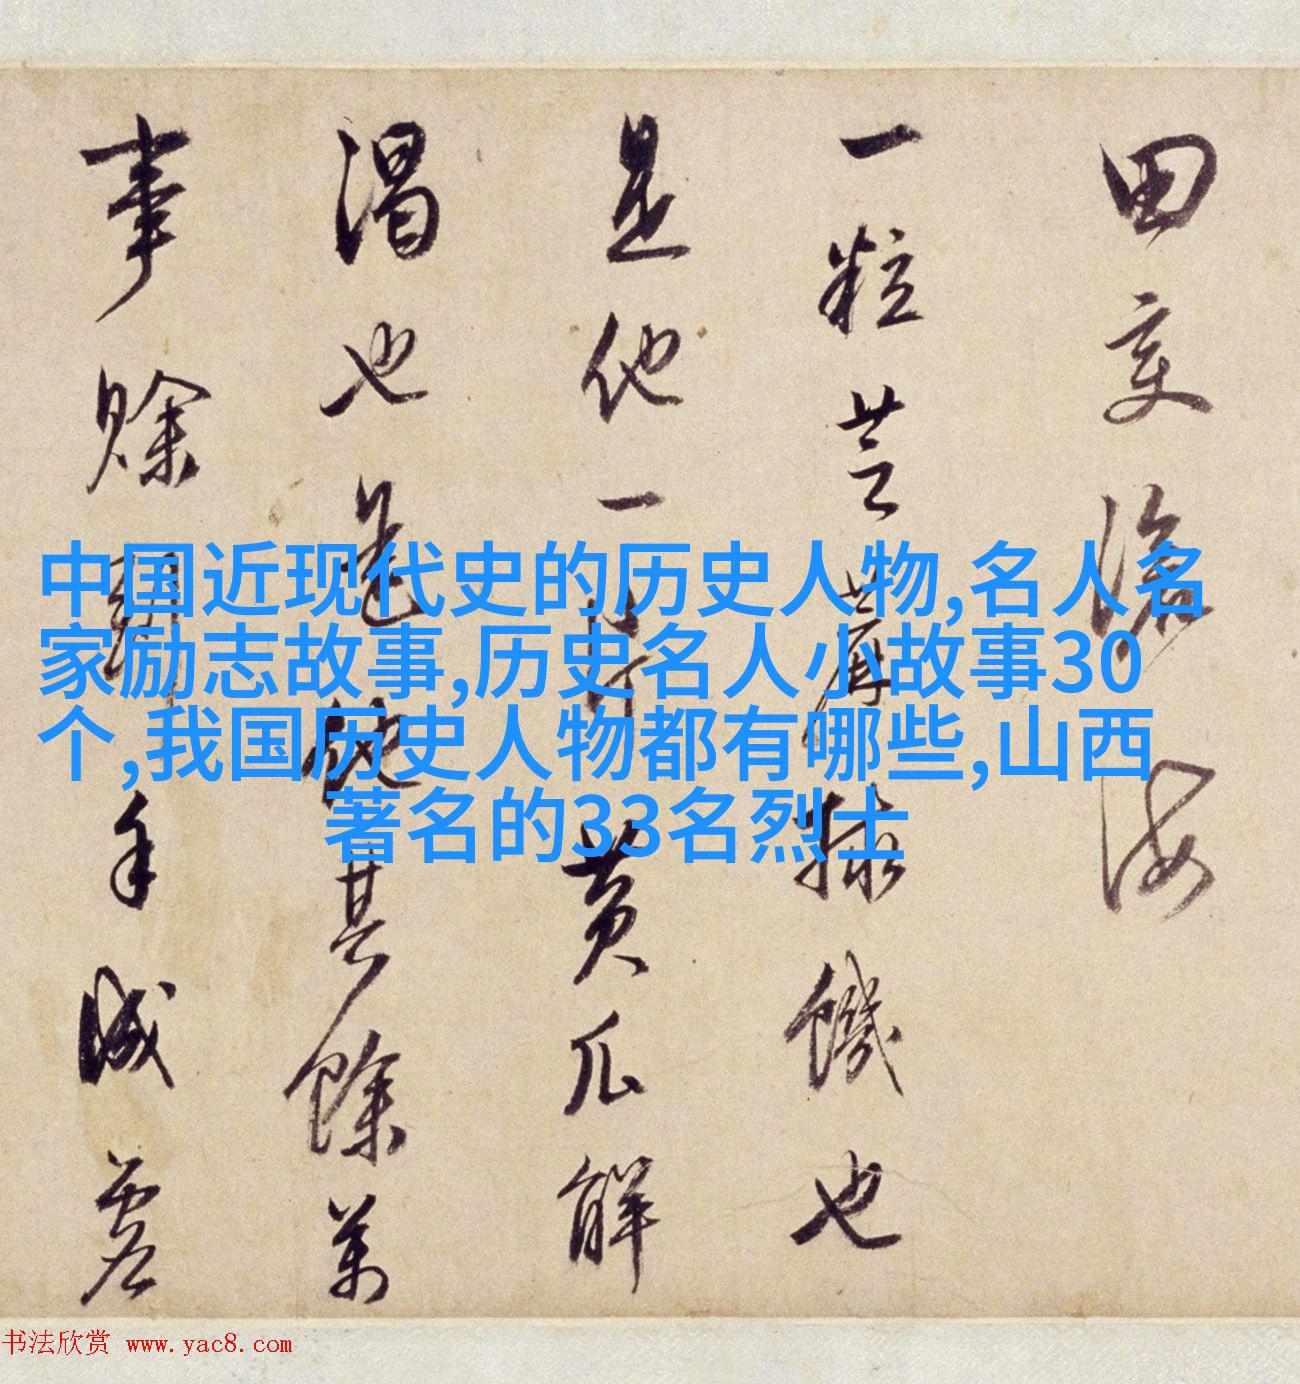 田变滄海
一粒芝饑也
是他一黄瓜解
渴也是他其餘萬
事賒手
中国近现代史的历史人物,名人名
家励志故事,历史名人小故事30
个,我国历史人物都有哪些,山西
著名的33名烈士
书法欣赏 www.yac8.com